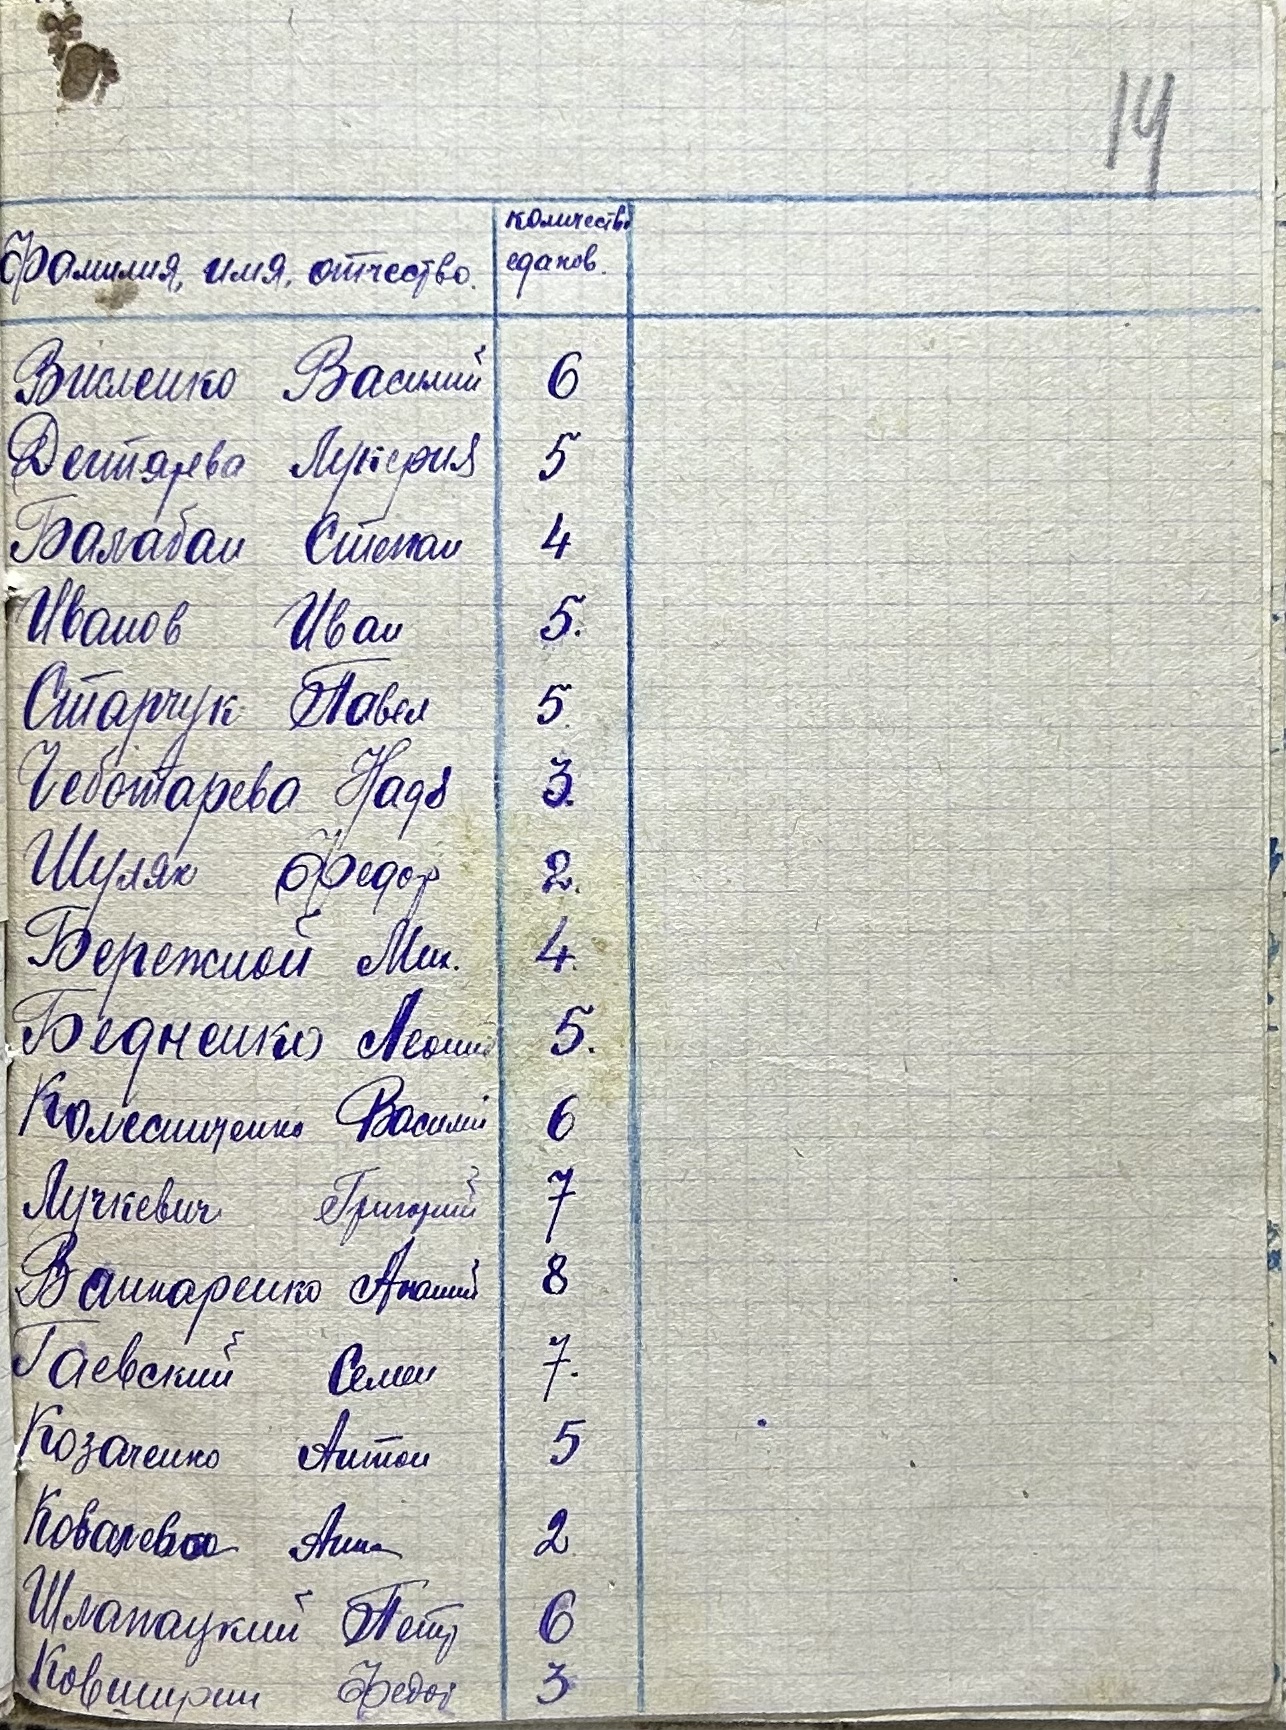 14
Фамилия, имя, отчество. количество
едоков.
Висленко Василий 6
Дегтярева Лукерия 5
Балабан Степан 4
Иванов Иван 5.
Старчук Павел 5.
Чеботарева Надя 3.
Шуляк Федор 2.
Бережной Мих. 4.
Бедненко Леонид 5.
Колесниченко Василий 6
Лучкевич Григорий 7
Ананий 8
Гаевский Семен 7.
Козаченко Антон 5
Ковалева Анна 2.
Шлапацкий Петр 6
Ковширин Федот 3